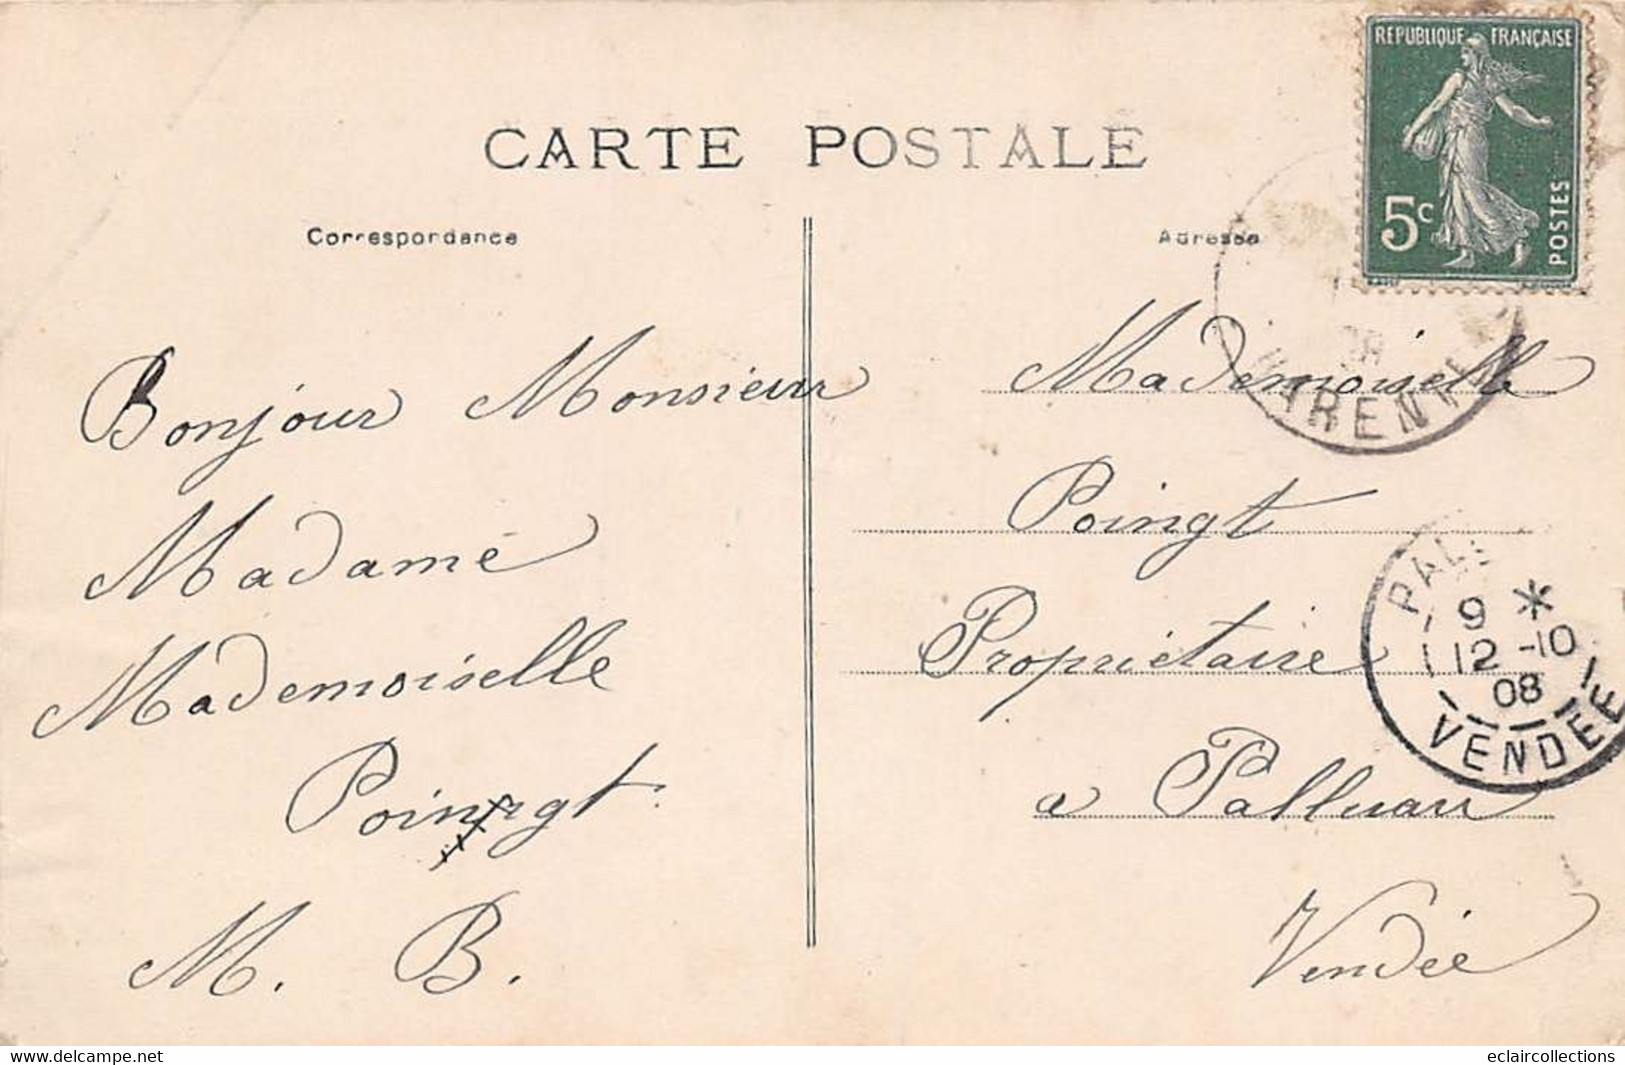 CARTE POSTALE
Correspondance
Bonjour Monsieur
Madame
Mademoiselle
Poingt.
M. B.
Adresse
REPUBLIQUE FRANÇAISE
5c
POSTES
Mademoiselle
Poingt
Propriétaire
a Palluau
Vendée
9 *
12-10
08
VENDEE
www.delcampe.net
eclaircollections